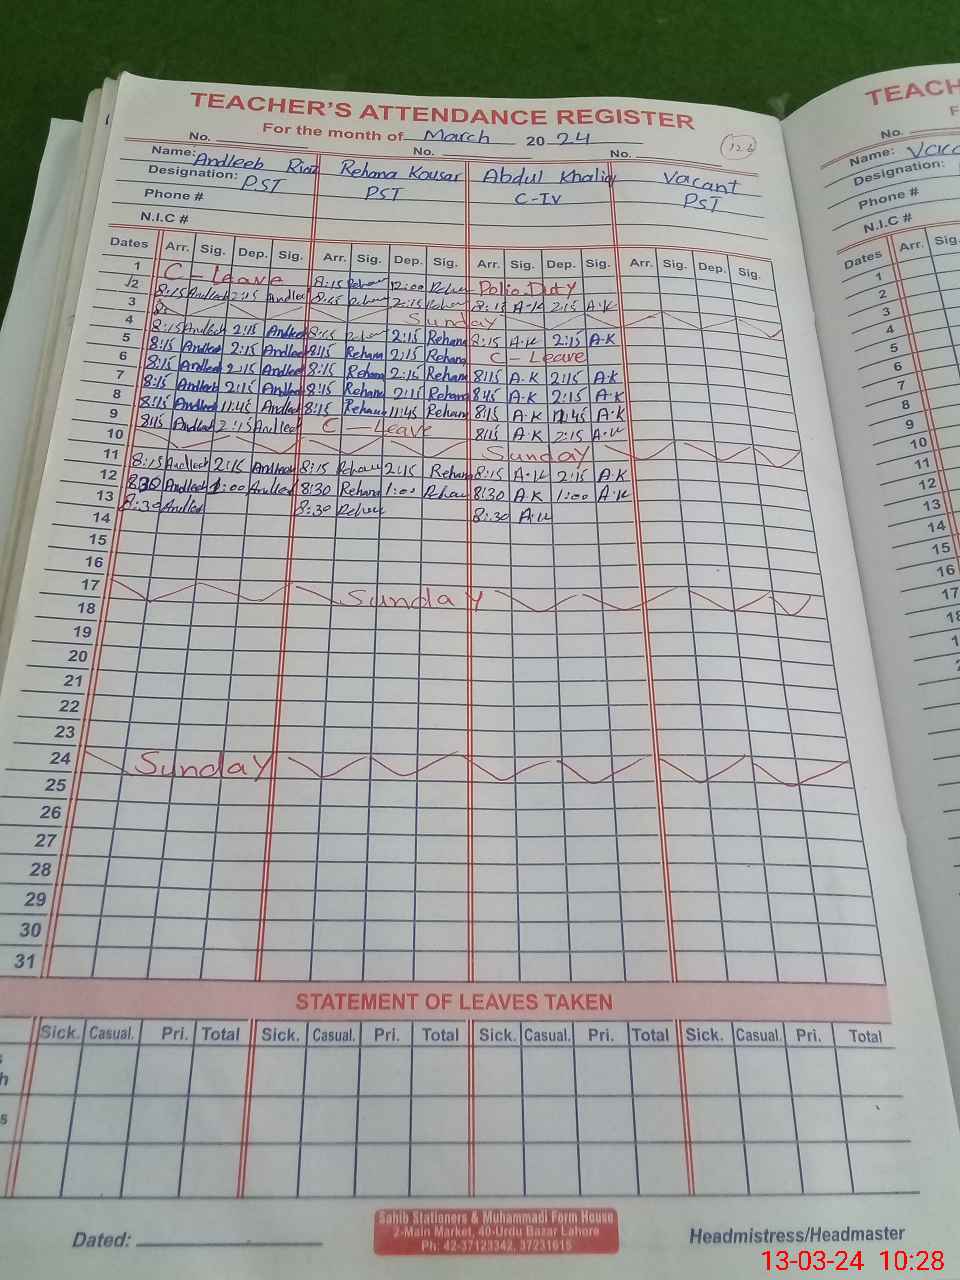 TEACHER'S ATTENDANCE REGISTER
For the month of March 2024
126
No. No. No.
Name: Andleeb Riaz Rehana Kousar Abdul Khaliq Vacant
Designation: PST PST C-IV PST
Phone #
N.I.C #
Dates Arr. Sig. Dep. Sig. Arr. Sig. Dep. Sig. Arr. Sig. Dep. Sig. Arr. Sig. Dep. Sig.
1 C-Leave 8:15 Rehana 12:00 Rehana Polio Duty
2 8:15 Andleeb 2:15 Andleeb 8:15 Rehana 2:15 Rehana 8:15 A-K 2:15 A-K
3 Sunday
4 8:15 Andleeb 2:15 Andleeb 8:15 Rehana 2:15 Rehana 8:15 A-K 2:15 A-K
5 8:15 Andleeb 2:15 Andleeb 8:15 Rehana 2:15 Rehana C-Leave
6 8:15 Andleeb 2:15 Andleeb 8:15 Rehana 2:15 Rehana 8:15 A-K 2:15 A-K
7 8:15 Andleeb 2:15 Andleeb 8:45 Rehana 2:15 Rehana 8:45 A-K 2:15 A-K
8 8:15 Andleeb 11:45 Andleeb 8:15 Rehana 11:45 Rehana 8:15 A-K 11:45 A-K
9 8:15 Andleeb 2:15 Andleeb C-Leave 8:15 A-K 2:15 A-K
10 Sunday
11 8:15 Andleeb 2:15 Andleeb 8:15 Rehana 2:15 Rehana 8:15 A-K 2:15 A-K
12 8:30 Andleeb 1:00 Andleeb 8:30 Rehana 1:00 Rehana 8:30 A-K 1:00 A-K
13 8:30 Andleeb 8:30 Rehana 8:30 A-K
14
15
16
17 Sunday
18
19
20
21
22
23
24 Sunday
25
26
27
28
29
30
31
STATEMENT OF LEAVES TAKEN
Sick. Casual. Pri. Total Sick. Casual. Pri. Total Sick. Casual. Pri. Total Sick. Casual. Pri. Total
Dated: Headmistress/Headmaster
Sahib Stationers & Muhammadi Form House
2-Main Market, 40-Urdu Bazar Lahore
Ph: 42-37123342, 37231615
TEACH
No.
Name: Vaca
Designation:
Phone #
N.I.C #
Dates Arr. Sig.
1
2
3
4
5
6
7
8
9
10
11
12
13
14
15
16
17
18
13-03-24 10:28